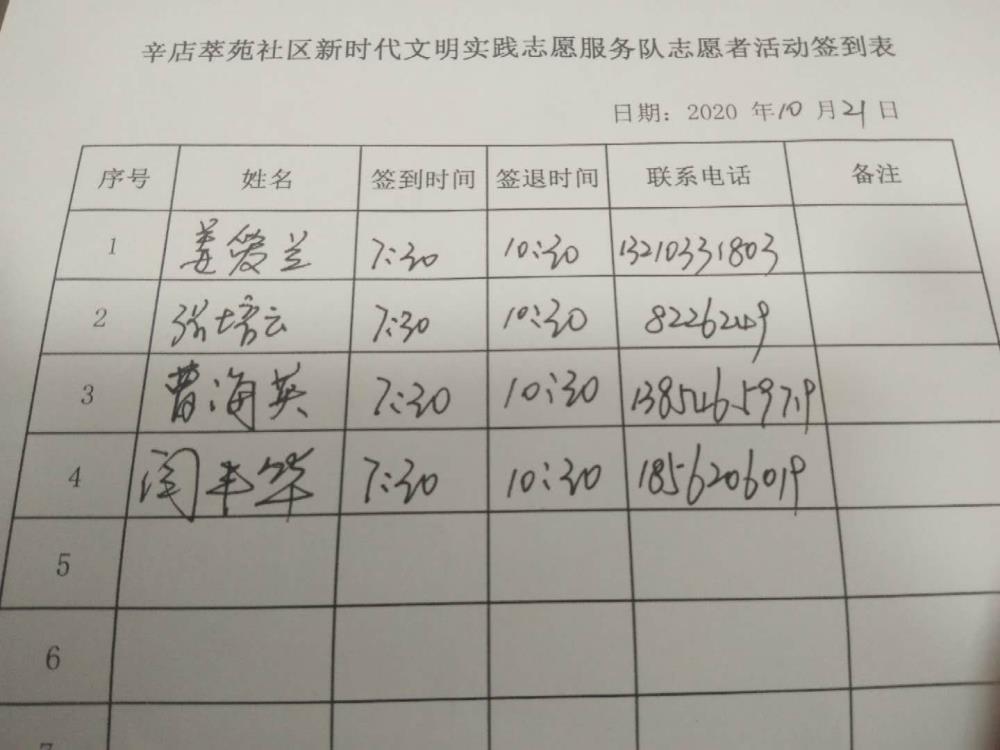 辛店萃苑社区新时代文明实践志愿服务队志愿者活动签到表
日期：2020 年10 月21 日
序号 姓名 签到时间 签退时间 联系电话 备注
1 姜爱兰 7:30 10:30 13210331803
2 张培云 7:30 10:30 8226249
3 曹海英 7:30 10:30
4 闫丰华 7:30 10:30 1856206019
5
6
7